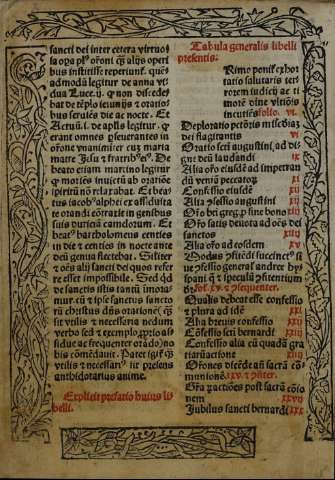 sancti dei inter cetera virtuosa
bus institisse reperiunt
admodū legitur de anna vi
dua Luce. ij. q̄ non discede
bat de tēplo ieiunijs & oratio
bus seruiēs die ac nocte. Et
Actuū. i. de apl̄is legitur. q̄
erant omnes pseuerantes in
orōne vnanimiter cuz maria
matre Jesu & fratrib⁹ ei⁹. De
beato etiam martino legitur
q̄ moriēs inuictū ab oratiōe
spiritū nō relaxabat. Et bea
tus iacob⁹ alphei ex assidui
te orandi cōtraxit in genibus
suis duriciā camelorum. Et
beat⁹ bartholomeus centies
in die & centies in nocte ante
deū genua flectebat. Siliter
& oēs alij sancti dei quos refer
re esset impossibile. Sed qd
de sanctis istis tantū immora
mur. cū & ipse sanctus sancto
rū christus dn̄s orationē
sit vtilis & necessaria nedum
verbo sed & exemplo
frequenter orādo
bis cōmēdauit. Patet
vtilis & necessari⁹ sit presens
antidotarius anime.
Explicit prefatio huius li
belli.
Tabula generalis libelli
presentis.
Rimo ponit exhor
ratio salutaris ter
rorem iudicij ac ti
morē diue vltiōis
incutiēs folio. vi.
Deploratio pctōris miseriā
dei flagitantis vi
Oratio scti augustini, ad dig
ne deū laudandi ix
Alia orō eiusdē ad impetran
dū veniā peccator⸝ xi
Confessio eiusdē xij
Alia pfessio augustini xij
Orō bti greg. p sine bono xiij
Orō satis deuota ad oēs dei
sanctos xiiij
Alia orō ad eosdem xv
Modus pfitēdi succinct⁹ si
ue pfessio general⸝ andree hy
spani q̄ & speculū pfitentium
fol. xv. & psequenter.
Qualis debeat esse confessio
& plura ad idē xxi
Alia breuis confessio xxij
Cōfessio scti bernardi xxiij
Confessio alia cū quadā gra
tiarūactione xxiij
Orones dicēde an̄ sacrā cō
munionē. xxv. & pn̄ter.
Gr̄a practiōes post sacrā cōio
nem xxv
Jubilus sancti bernardi xxx